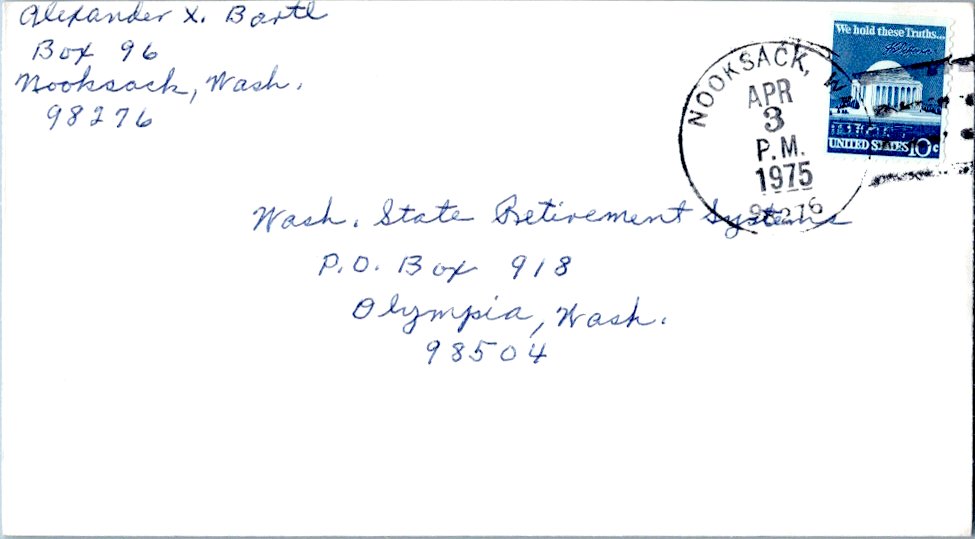 Alexander X. Bartl
Box 96
Nooksack, Wash.
98276
We hold these Truths...
UNITED STATES 10c
NOOKSACK, W
APR
3
P.M.
1975
98276
Wash. State Retirement Systems
P.O. Box 918
Olympia, Wash.
98504